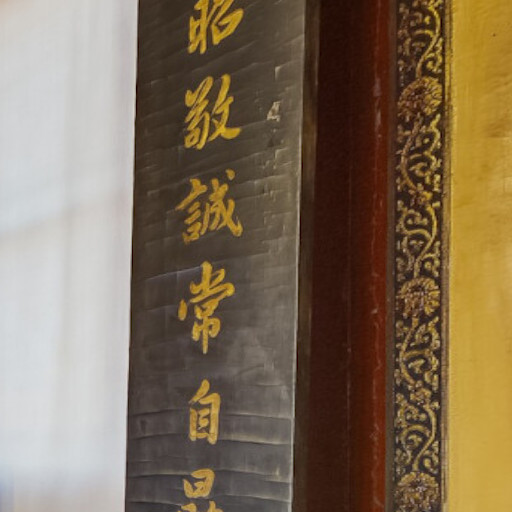 昭敬誠常自